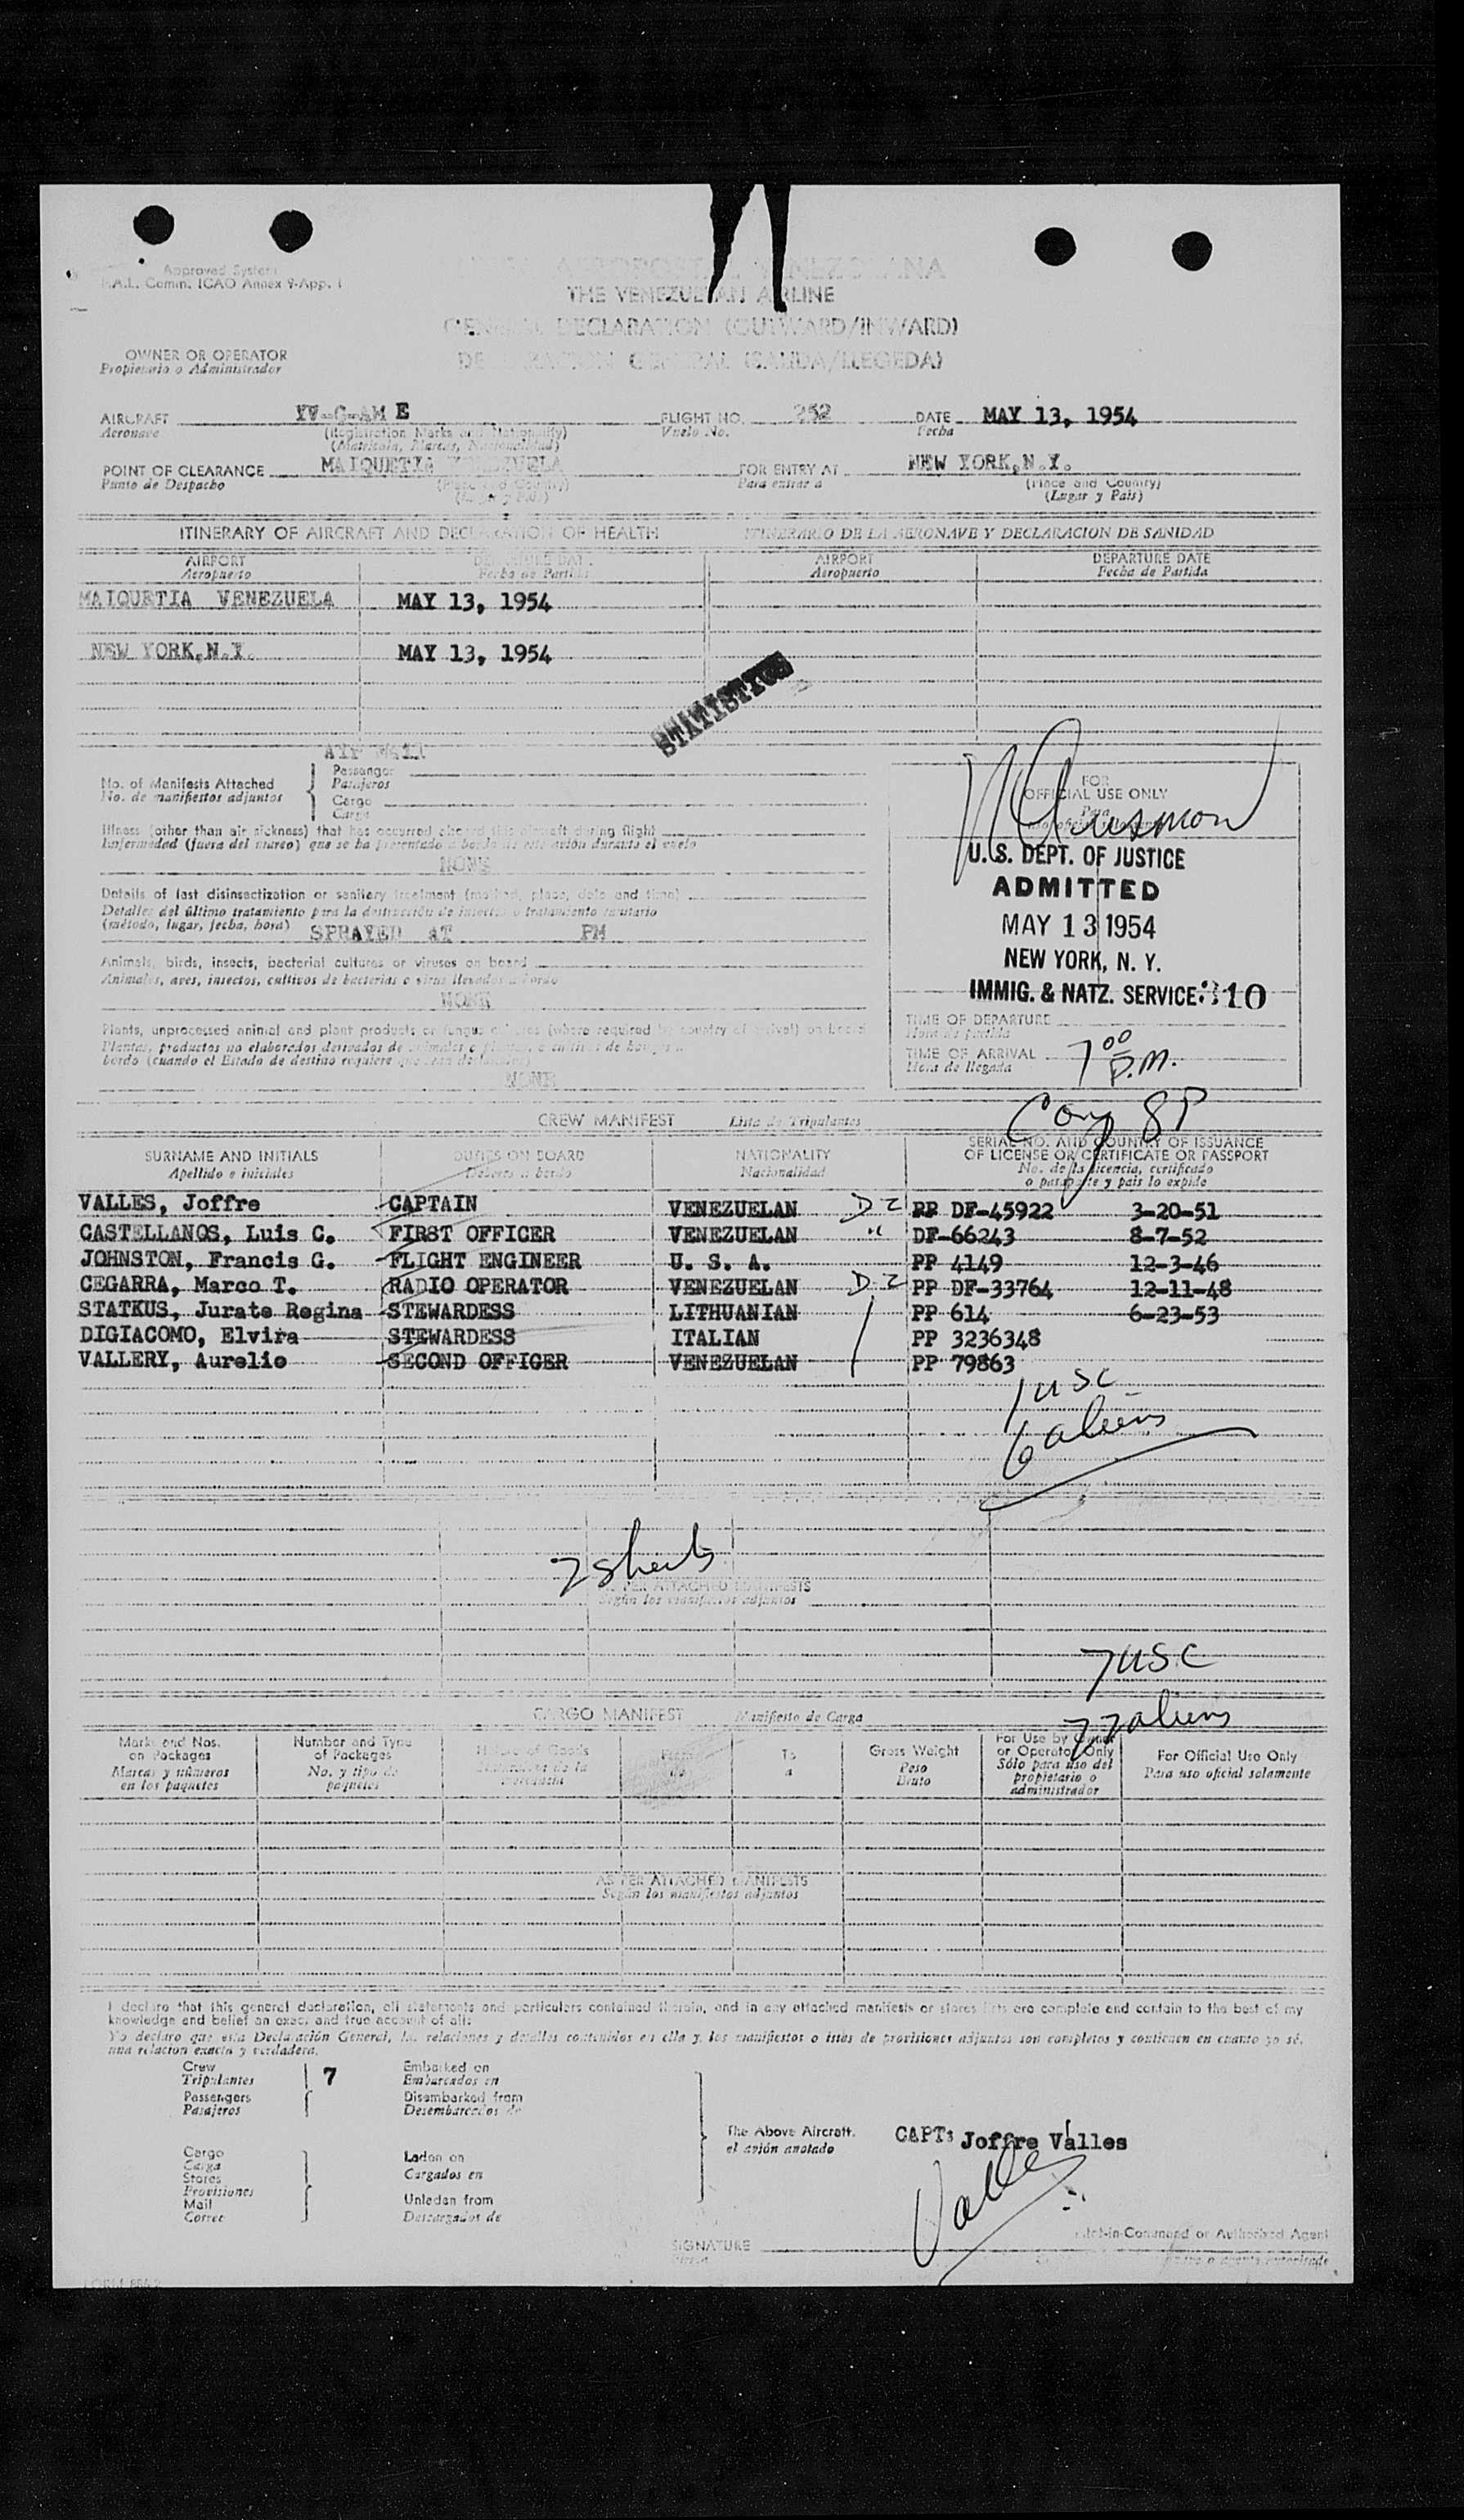 Approved System
F.A.L. Comm. ICAO Annex 9-App. 1
THE VENEZUELAN AIRLINE
GENERAL DECLARATION (OUTWARD/INWARD)
GENERAL (SALIDA/LLEGEDA)
OWNER OR OPERATOR
Propietario o Administrador
AIRCRAFT YV-C-AM E FLIGHT NO. 252 DATE MAY 13, 1954
Aeronave (Registration Marks and Nationality) Vuelo No. Fecha
(Matricula, Marcas, Nacionalidad)
POINT OF CLEARANCE MAIQUETIA VENEZUELA FOR ENTRY AT NEW YORK,N.Y.
Punto de Despacho Para entrar a (Place and Country)
(Lugar y Pais)
ITINERARY OF AIRCRAFT AND DECLARATION OF HEALTH ITINERARIO DE LA AERONAVE Y DECLARACION DE SANIDAD
AIRPORT DEPARTURE DATE AIRPORT DEPARTURE DATE
Aeropuerto Fecha de Partida Aeropuerto Fecha de Partida
MAIQUETIA VENEZUELA MAY 13, 1954
NEW YORK,N.Y. MAY 13, 1954
STATISTICS
AIR MAIL
No. of Manifests Attached Passenger
No. de manifiestos adjuntos Pasajeros
Cargo
Carga
Illness (other than air sickness) that has occurred aboard this aircraft during flight
Enfermedad (fuera del mareo) que se ha presentado a bordo de este avión durante el vuelo
NONE
Details of last disinsectization or sanitary treatment (method, place, date and time)
Detalles del último tratamiento para la destrucción de insectos o tratamiento sanitario
(método, lugar, fecha, hora) SPRAYED AT PM
Animals, birds, insects, bacterial cultures or viruses on board
Animales, aves, insectos, cultivos de bacterias o virus llevados a bordo
NONE
Plants, unprocessed animal and plant products or fungus cultures (where required by country of arrival) on board
Plantas, productos no elaborados derivados de animales o plantas, o cultivos de hongos a
bordo (cuando el Estado de destino requiere
NONE
FOR
OFFICIAL USE ONLY
Para
U.S. DEPT. OF JUSTICE
ADMITTED
MAY 13 1954
NEW YORK, N. Y.
IMMIG. & NATZ. SERVICE 310
TIME OF DEPARTURE
Hora de partida
TIME OF ARRIVAL 7 00 P.M.
Hora de llegada
CREW MANIFEST Lista de Tripulantes
SURNAME AND INITIALS DUTIES ON BOARD NATIONALITY SERIAL NO. AND COUNTRY OF ISSUANCE
OF LICENSE OR CERTIFICATE OR PASSPORT
Apellido e iniciales Deberes a bordo Nacionalidad No. de la licencia, certificado
o pasaporte y pais lo expide
VALLES, Joffre CAPTAIN VENEZUELAN D2 PP DF-45922 3-20-51
CASTELLANOS, Luis C. FIRST OFFICER VENEZUELAN " DF-66243 8-7-52
JOHNSTON, Francis G. FLIGHT ENGINEER U. S. A. PP 4149 12-3-46
CEGARRA, Marco T. RADIO OPERATOR VENEZUELAN D2 PP DF-33764 12-11-48
STATKUS, Jurate Regina STEWARDESS LITHUANIAN PP 614 6-23-53
DIGIACOMO, Elvira STEWARDESS ITALIAN PP 3236348
VALLERY, Aurelio SECOND OFFICER VENEZUELAN PP 79863
1 USC
6 aliens
7 sheets
AS PER ATTACHED MANIFESTS
Según los manifiestos adjuntos
7 USC
77 aliens
CARGO MANIFEST Manifiesto de Carga
Marks and Nos. on Packages Number and Type of Packages Nature of Goods From To Gross Weight For Use by Owner or Operator Only For Official Use Only
Marcas y números en los paquetes No. y tipo de paquetes de a Peso Bruto Sólo para uso del propietario o administrador Para uso oficial solamente
AS PER ATTACHED MANIFESTS
Según los manifiestos adjuntos
I declare that this general declaration, all statements and particulars contained therein, and in any attached manifests or stores lists are complete and contain to the best of my
knowledge and belief an exact and true account of all:
Yo declaro que esta Declaración General, las relaciones y detalles contenidos en ella y, los manifiestos o listas de provisiones adjuntos son completos y contienen en cuanto yo sé,
una relación exacta y verdadera.
Crew 7 Embarked on
Tripulantes Embarcados en
Passengers Disembarked from
Pasajeros Desembarcados de
The Above Aircraft. CAPT: Joffre Valles
el avión anotado
Cargo Laden on
Carga Cargados en
Stores
Provisiones
Mail Unladen from
Correo Descargados de
Valles
SIGNATURE Pilot-in-Command or Authorized Agent